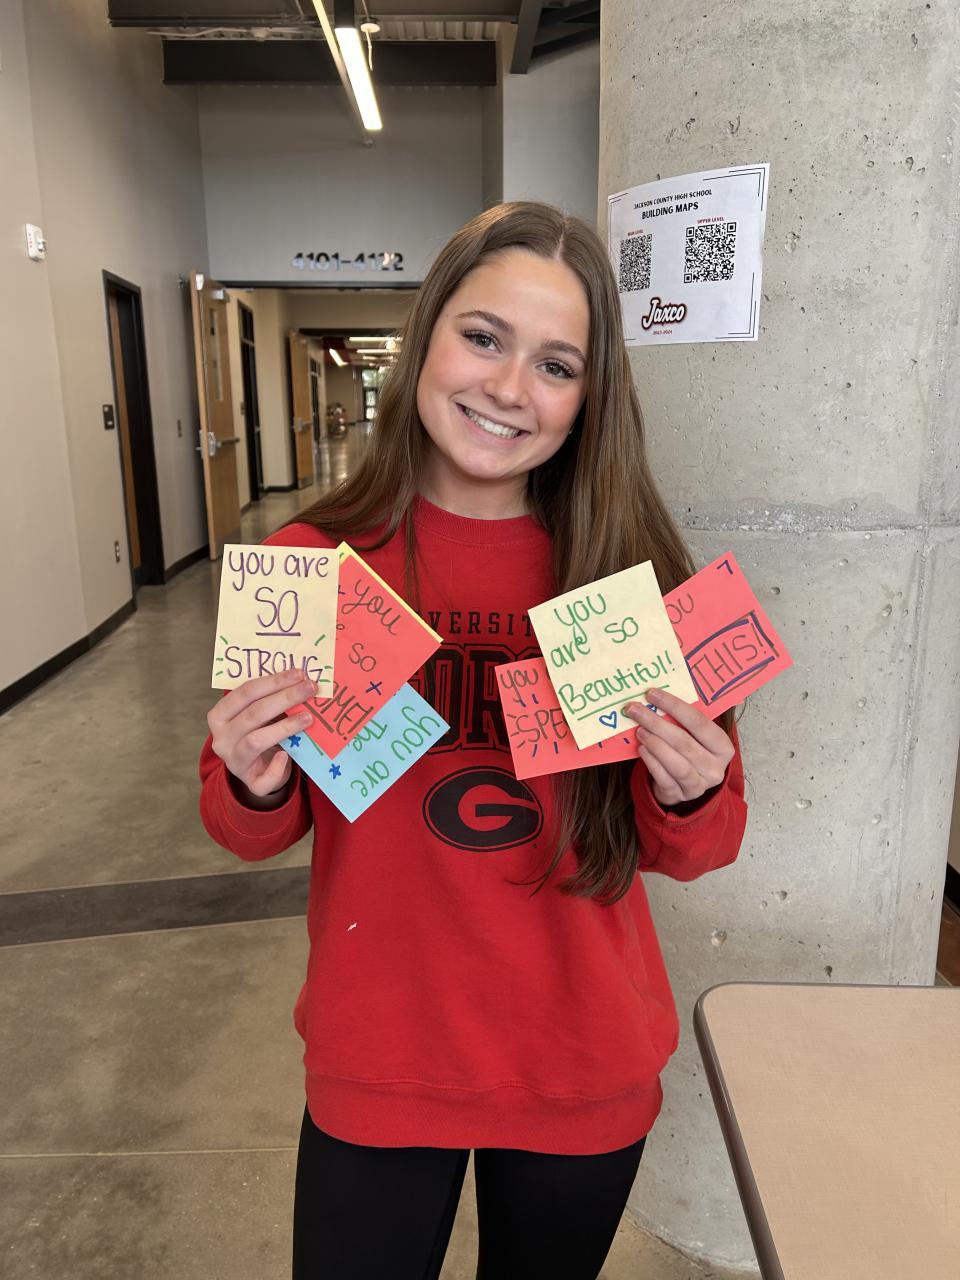 JACKSON COUNTY HIGH SCHOOL
BUILDING MAPS
MAIN LEVEL
UPPER LEVEL
Jaxco
4101-4122
you are
SO
STRONG
you
so
you are
The
VERSI
G
you
are so
Beautiful!
you
SPE
THIS!